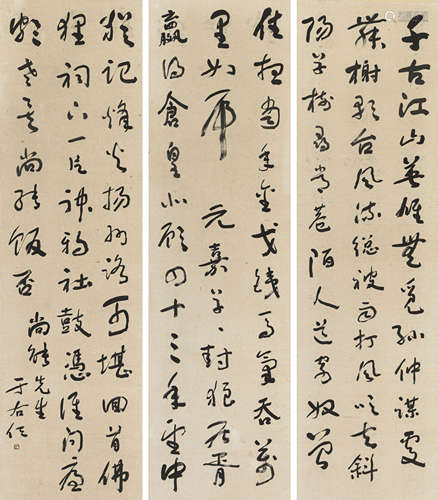 千古江山英雄無覓孫仲謀處
舞榭歌台風流總被雨打風吹去斜
陽草樹尋常巷陌人道寄奴曾
住想當年金戈鐵馬氣吞萬
里如虎 元嘉草草封狼居胥
贏得倉皇北顧四十三年望中
猶記烽火揚州路可堪回首佛
狸祠下一片神鴉社鼓憑誰問廉
頗老矣尚能飯否
尚 先生
于右任